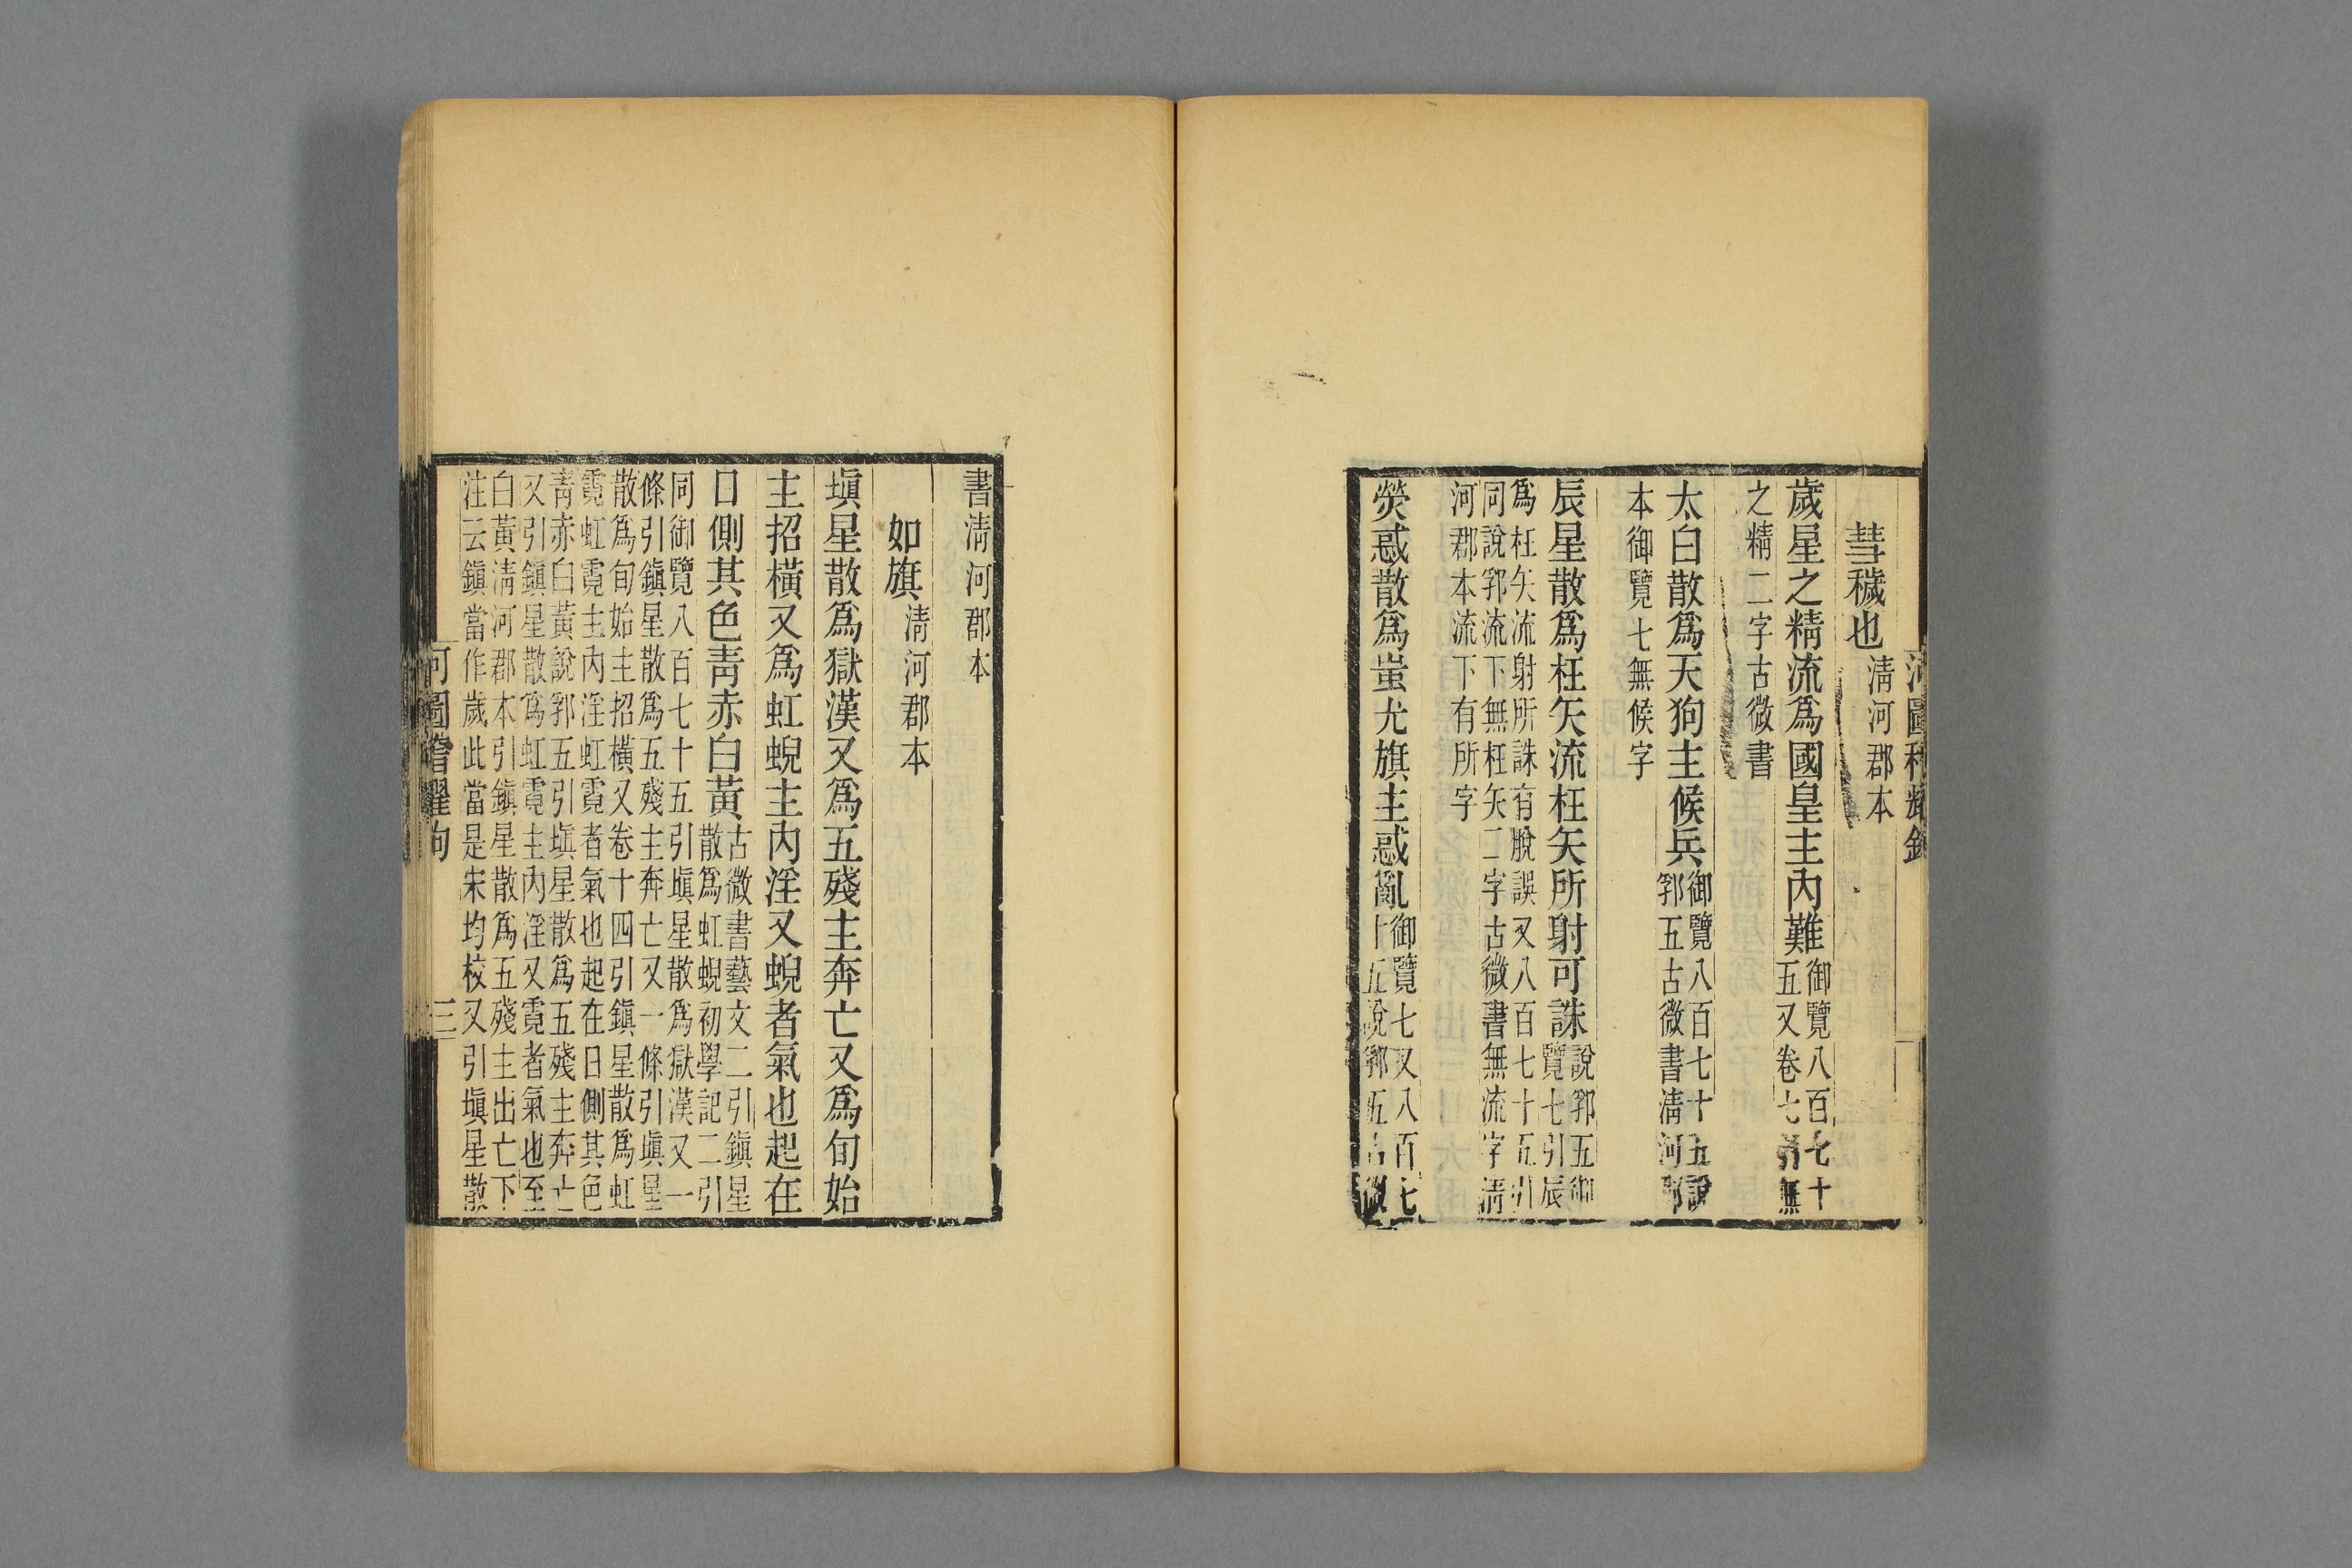 彗穢也
清河郡本
歲星之精流爲國皇主內難
御覽八百七十
五又卷七 無
之精二字古微書
太白散爲天狗主候兵
御覽八百七十五說
郛五古微書清河郡
本御覽七無候字
辰星散爲枉矢流枉矢所射可誅
說郛五御
覽七引辰
爲枉矢流射所誅有脫誤又八百七十五引
同說郛流下無枉矢二字古微書無流字清
河郡本流下有所字
熒惑散爲蚩尤旗主惑亂
御覽七又八百七
十五說郛五古微
書清河郡本
如旗
清河郡本
塡星散爲獄漢又爲五殘主奔亡又爲旬始
主招橫又爲虹蜺主內淫又蜺者氣也起在
日側其色靑赤白黃
古微書藝文二引鎭星
散爲虹蜺初學記二引
同御覽八百七十五引塡星散爲獄漢又一
條引鎭星散爲五殘主奔亡又一條引塡星
散爲旬始主招橫又卷十四引鎭星散爲虹
霓虹霓主內淫虹霓者氣也起在日側其色
靑赤白黃說郛五引塡星散爲五殘主奔亡
又引鎭星散爲虹霓主內淫又霓者氣也至
白黃清河郡本引鎭星散爲五殘主出亡下
注云鎭當作歲此當是宋均校又引塡星散
河圖稽耀鉤
三